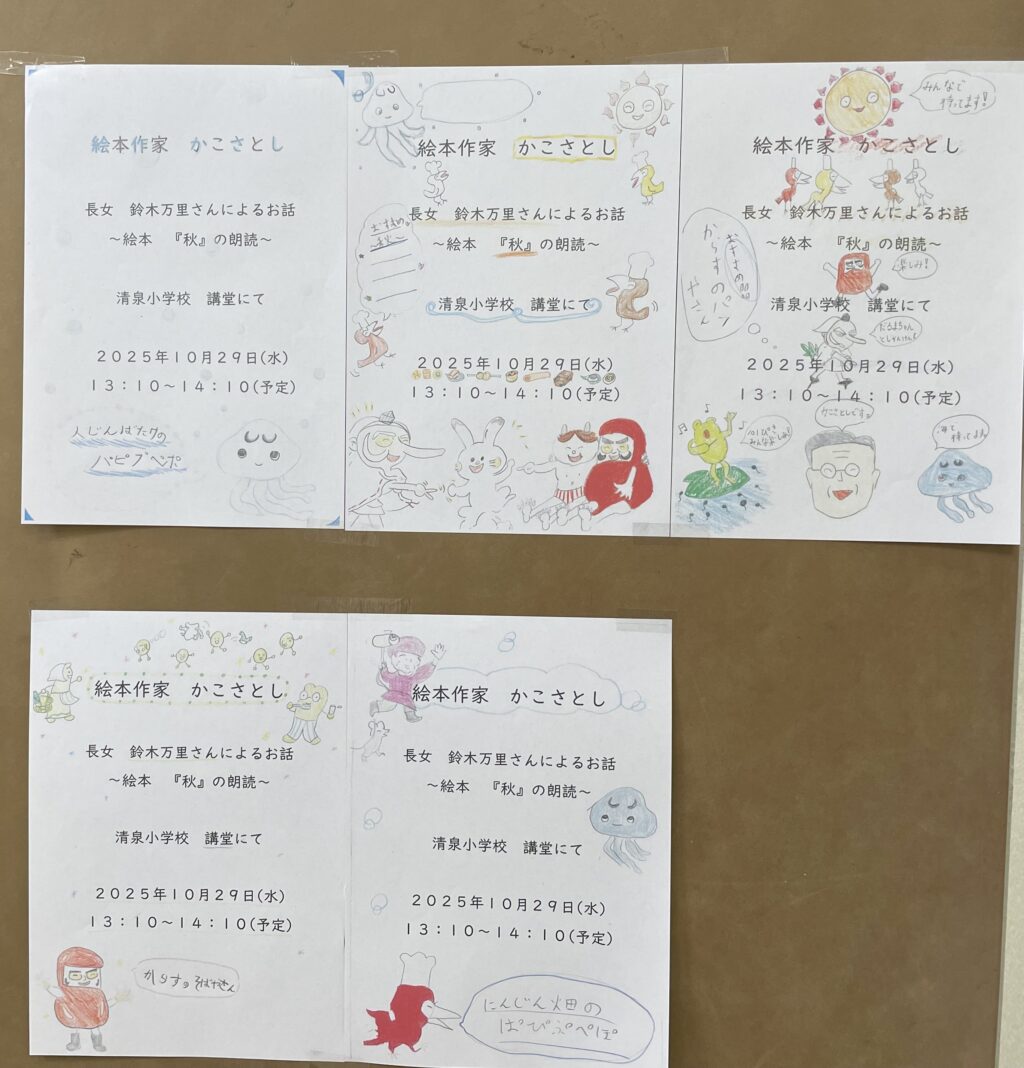 絵本作家 かこさとし
長女 鈴木万里さんによるお話
～絵本 『秋』の朗読～
清泉小学校 講堂にて
２０２５年１０月２９日(水)
１３：１０～１４：１０(予定)
人じんばたけの
パピプペポ
絵本作家 かこさとし
長女 鈴木万里さんによるお話
～絵本 『秋』の朗読～
おすすめ
～秋～
清泉小学校 講堂にて
２０２５年１０月２９日(水)
１３：１０～１４：１０(予定)
みんなで
待ってます！
絵本作家 かこさとし
長女 鈴木万里さんによるお話
～絵本 『秋』の朗読～
からすのパン
やさん
楽しみ！
清泉小学校 講堂にて
だるまちゃん
２０２５年１０月２９日(水)
１３：１０～１４：１０(予定)
かこさとしです
101ぴき
みんな
待ってます
絵本作家 かこさとし
長女 鈴木万里さんによるお話
～絵本 『秋』の朗読～
清泉小学校 講堂にて
２０２５年１０月２９日(水)
１３：１０～１４：１０(予定)
からすのそばやさん
絵本作家 かこさとし
長女 鈴木万里さんによるお話
～絵本 『秋』の朗読～
清泉小学校 講堂にて
２０２５年１０月２９日(水)
１３：１０～１４：１０(予定)
にんじん畑の
ぱぴぷぺぽ